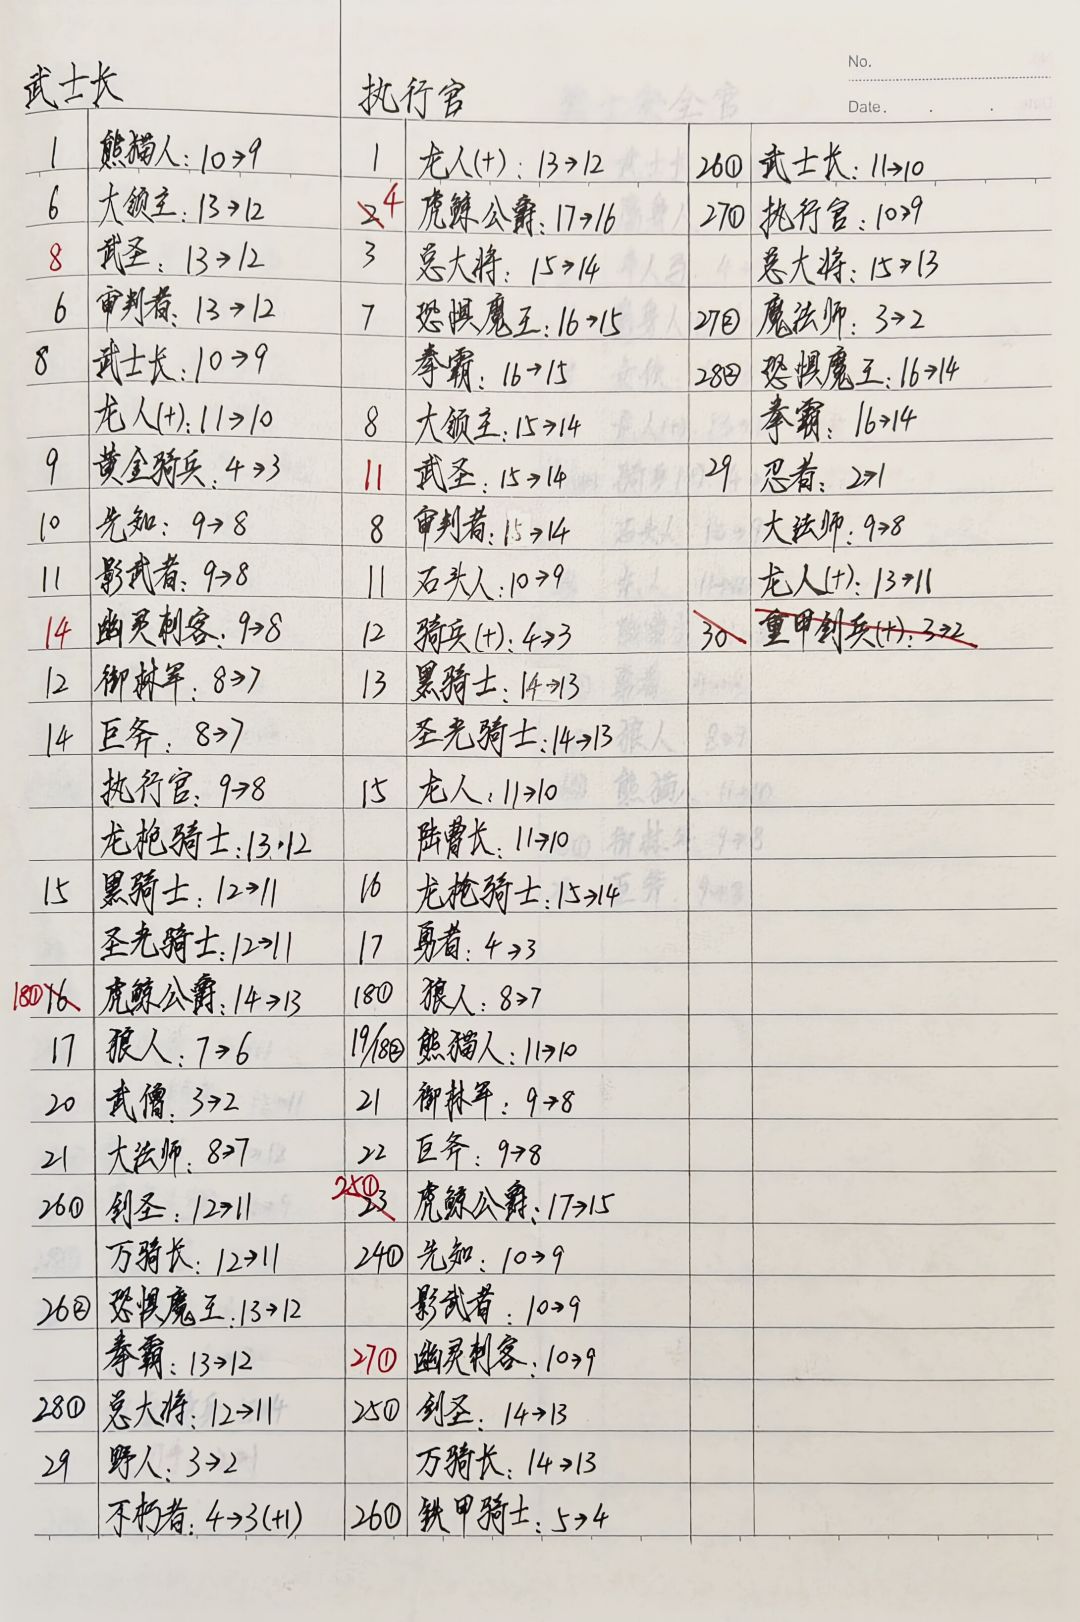 No.
Date.
武士长
1 熊猫人：10→9
6 大领主：13→12
8 武圣：13→12
6 审判者：13→12
8 武士长：10→9
龙人(+)：11→10
9 黄金骑兵：4→3
10 先知：9→8
11 影武者：9→8
14 幽灵刺客：9→8
12 御林军：8→7
14 巨斧：8→7
执行官：9→8
龙枪骑士：13→12
15 黑骑士：12→11
圣光骑士：12→11
18① 16 虎鲸公爵：14→13
17 狼人：7→6
20 武僧：3→2
21 大法师：8→7
26① 剑圣：12→11
万骑长：12→11
26② 恐惧魔王：13→12
拳霸：13→12
28① 总大将：12→11
29 野人：3→2
不朽者：4→3(+1)
执行官
1 龙人(+)：13→12
2 4 虎鲸公爵：17→16
3 总大将：15→14
7 恐惧魔王：16→15
拳霸：16→15
8 大领主：15→14
11 武圣：15→14
8 审判者：15→14
11 石头人：10→9
12 骑兵(+)：4→3
13 黑骑士：14→13
圣光骑士：14→13
15 龙人：11→10
陆曹长：11→10
16 龙枪骑士：15→14
17 勇者：4→3
18① 狼人：8→7
19/18② 熊猫人：11→10
21 御林军：9→8
22 巨斧：9→8
25① 23 虎鲸公爵：17→15
24① 先知：10→9
影武者：10→9
27① 幽灵刺客：10→9
25① 剑圣：14→13
万骑长：14→13
26① 铁甲骑士：5→4
26① 武士长：11→10
27① 执行官：10→9
总大将：15→13
27② 魔法师：3→2
28② 恐惧魔王：16→14
拳霸：16→14
29 忍者：2→1
大法师：9→8
龙人(+)：13→11
30 重甲剑兵(+)：3→2